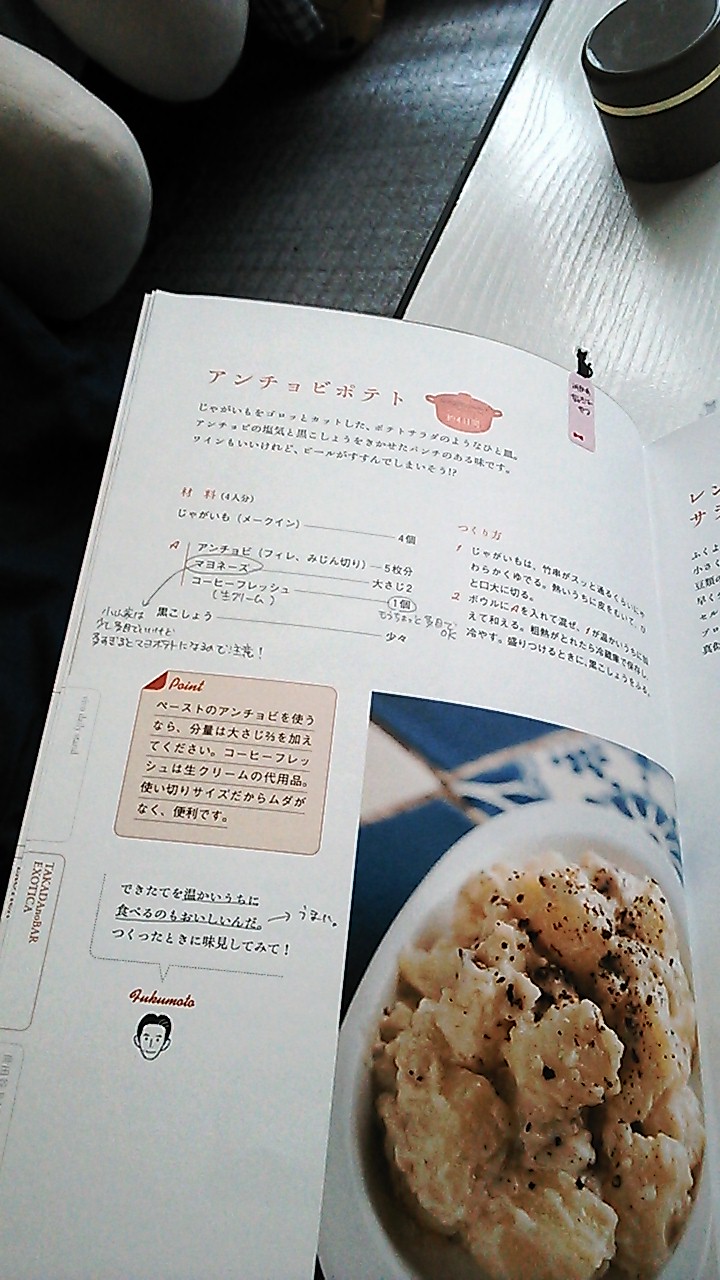 アンチョビポテト
約4日間
じゃがいもをゴロッとカットした、ポテトサラダのようなひと皿。
アンチョビの塩気と黒こしょうをきかせたパンチのある味です。
ワインもいいけれど、ビールがすすんでしまいそう!?
材料(4人分)
じゃがいも(メークイン) 4個
A
アンチョビ(フィレ、みじん切り) 5枚分
マヨネーズ 大さじ2
コーヒーフレッシュ 1個
(生クリーム)
もうちょっと多目でOK
黒こしょう 少々
少し多目でいいけど
多すぎるとマヨポテトになるので注意!
つくり方
1 じゃがいもは、竹串がスッと通るくらいにや
わらかくゆでる。熱いうちに皮をむいて、ひ
と口大に切る。
2 ボウルにAを入れて混ぜ、1が温かいうちに加
えて和える。粗熱がとれたら冷蔵庫で保存し、
冷やす。盛りつけるときに、黒こしょうをふる。
Point
ペーストのアンチョビを使う
なら、分量は大さじ⅔を加え
てください。コーヒーフレッ
シュは生クリームの代用品。
使い切りサイズだからムダが
なく、便利です。
できたてを温かいうちに
食べるのもおいしいんだ。 → うまい。
つくったときに味見してみて!
Fukumoto
TAKADAnoBAR
EXOTICA
レン
サラ
ふくよ
小さく
豆類の
早く
セル
プロ
真似